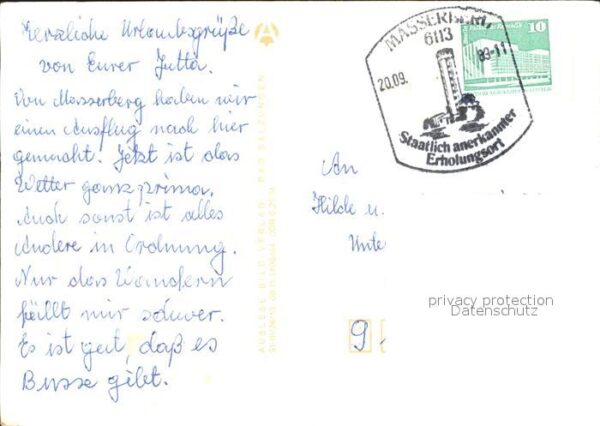 Herzliche Urlaubsgrüße
von Eurer Jutta.
Von Masserberg haben wir
einen Ausflug nach hier
gemacht. Jetzt ist das
Wetter ganz prima.
Auch sonst ist alles
Andere in Ordnung.
Nur das Wandern
fällt mir schwer.
Es ist gut, daß es
Busse gibt.
AUSLESE-BILD-VERLAG
BAD SALZUNGEN
MASSERBERG
6113
20.09.
89-11
Staatlich anerkannter
Erholungsort
10
An
Hilde u.
Unte
9
privacy protection
Datenschutz